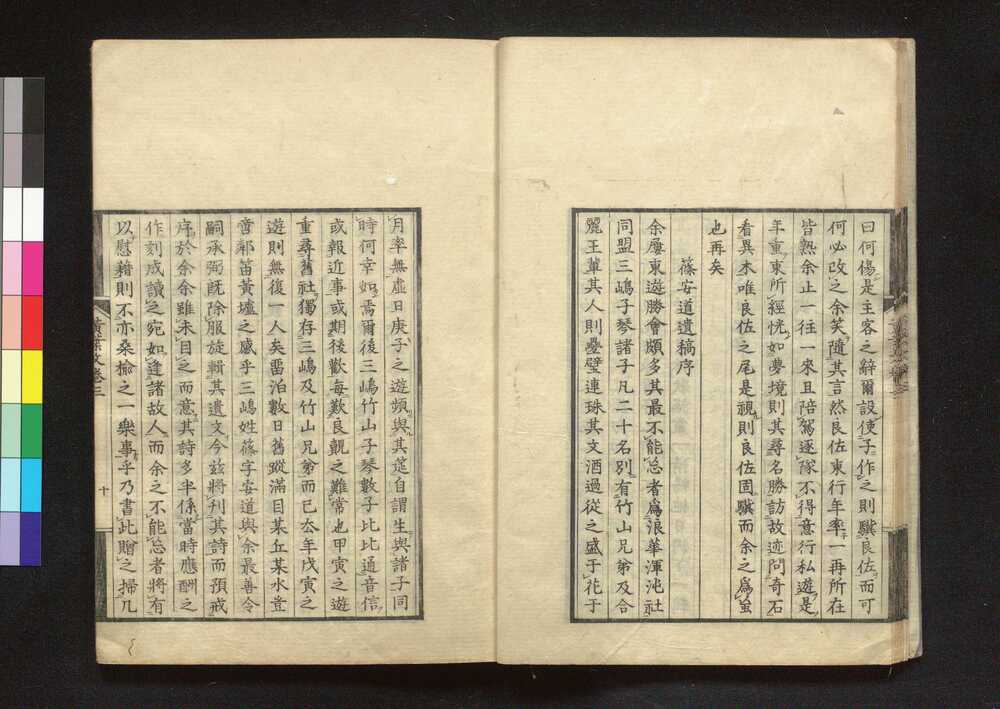 曰何傷是主客之辭爾設使子作之則驥良佐而可
何必改之余笑隨其言然良佐東行年率一再所在
皆熟余止一往一來且陪駕逐隊不得意行私遊是
年重東所經恍如夢境則其尋名勝訪故迹問奇石
看異木唯良佐之尾是視則良佐固驥而余之爲蚊
也再矣
篠安道遺稿序
余屢東遊勝會頗多其最不能忘者爲浪華渾沌社
同盟三嶋子琴諸子凡二十名別有竹山兄弟及合
麗王軰其人則疊璧連珠其文酒過從之盛于花于
月率無虛日庚子之遊頻與其筵自謂生與諸子同
時何幸如焉爾後三嶋竹山子琴數子比比通音信
或報近事或期後歡每歎良覿之難常也甲寅之遊
重尋舊社獨存三嶋及竹山兄弟而已厺年戊寅之
遊則無復一人矣畱泊數日舊蹤滿目某丘某水豈
啻鄰笛黃壚之感乎三嶋姓篠字安道與余最善令
嗣承弼既除服旋輯其遺文今玆將刋其詩而預戒
序於余余雖未目之而意其詩多半係當時應酬之
作刻成讀之宛如逢諸故人而余之不能忘者將有
以慰藉則不亦桑楡之一樂事乎乃書此贈之掃几
黃葉夕卷三
十